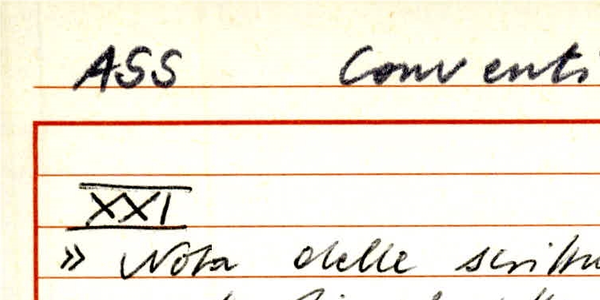 ASS Conventi
XXI
» Nota delle scrittu